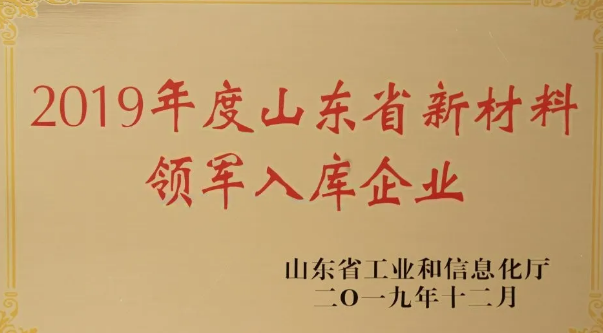 2019年度山东省新材料
领军入库企业
山东省工业和信息化厅
二〇一九年十二月